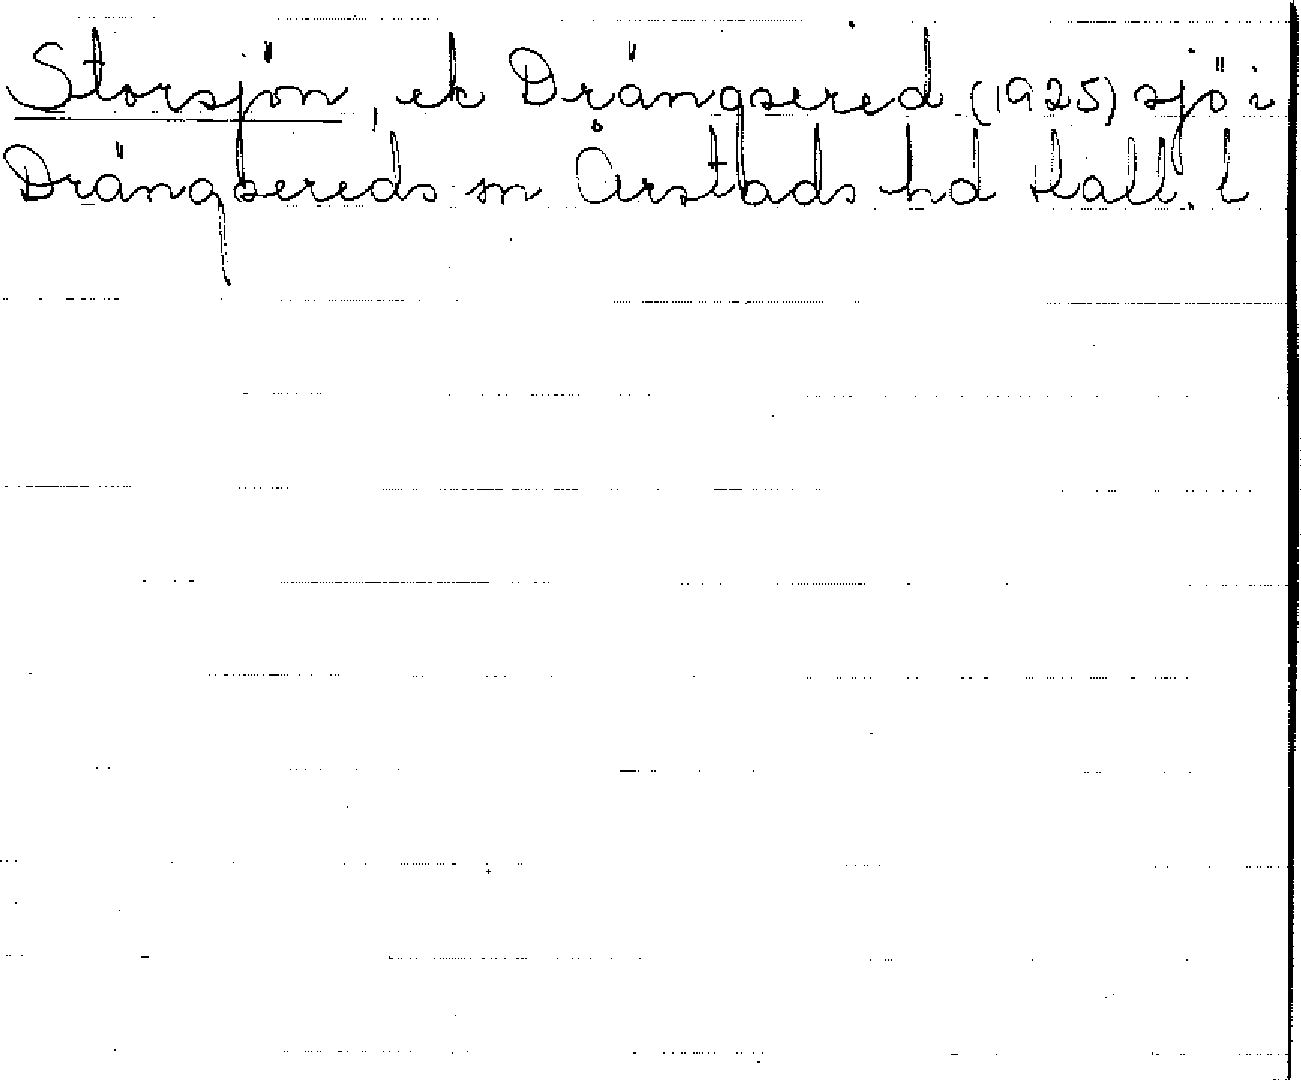 Storsjön, ek Drängsered (1925) sjö i
Drängsereds sn Årstads hd Hall. l